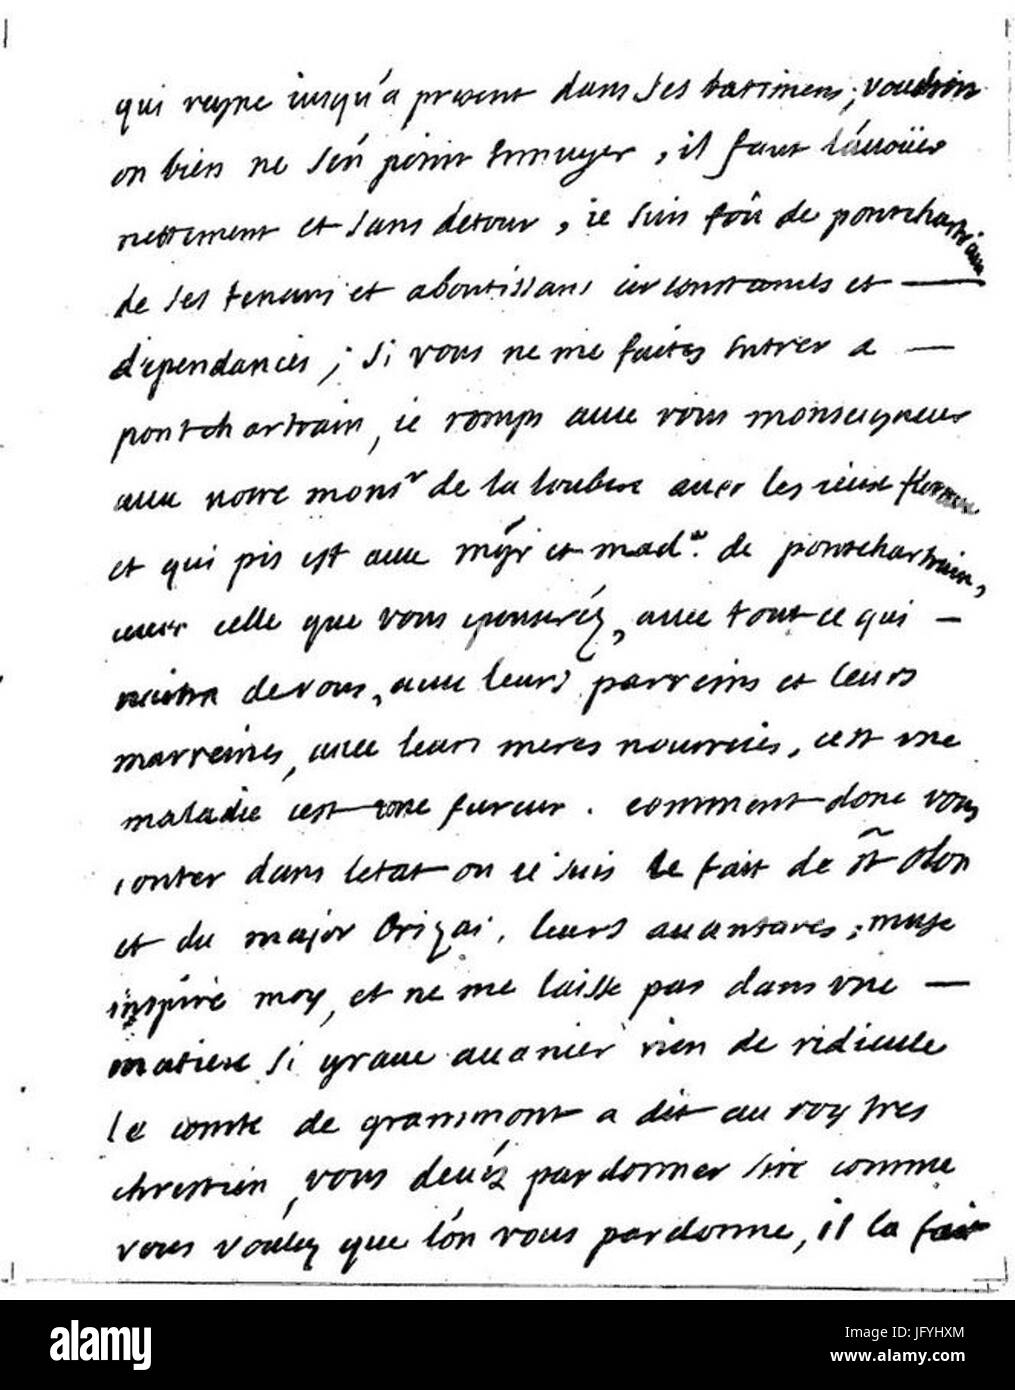 qui reyne iusqu'a present dans ses batimens, voudroit
on bien ne s'en point ennuyer, il faut l'auoüer
nettement et sans detour, ie suis foû de pontchartrain
de ses tenans et aboutissans circonstances et —
dependances; si vous ne me faites entrer a —
pontchartrain, ie romps auec vous monseigneur
auec notre monsr de la loubere auec les
et qui pis est auec mgr et made. de pontchartrain,
auec celle que vous epouserez, auec tout ce qui —
naitra de vous, auec leurs parreins et leurs
marreines, auec leurs meres nourrices, cest vne
maladie cest vne fureur. comment donc vous
conter dans letat ou ie suis le fait de st olon
et du major Brizai, leurs auantares, muse
inspire moy, et ne me laisse pas dans vne —
matiere si graue auancer rien de ridicule
le comte de grammont a dit au roy tres
chrestien, vous deuéz pardonner sire comme
vous voulez que l'on vous pardonne, il la fait
alamy stock photo
a
alamy
Image ID: JFYHXM
www.alamy.com